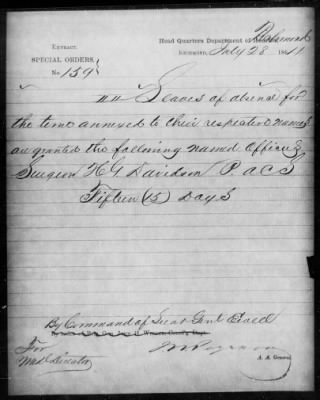 Head Quarters Department of Richmond
Extract.
Richmond, July 28 1864
SPECIAL ORDERS,
No. 159
Leaves of absence for
the time annexed to their respective names
are granted the following named Officers
Surgeon H G Davidson P. A C S
Fifteen (15) Days
By Command of Lieut Genl Ewell
For
Med Director
A. A. General